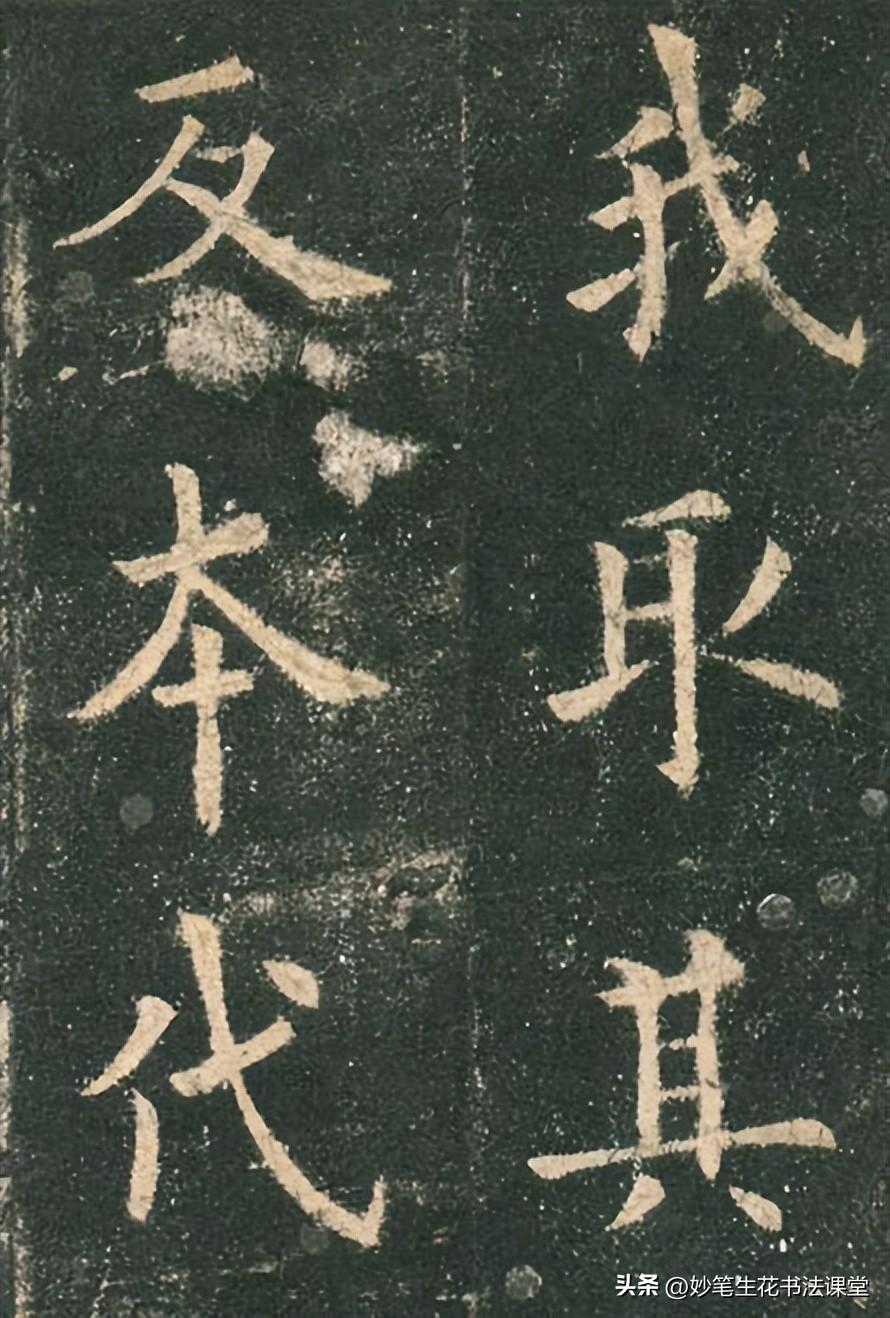 我取其
反本代
头条 @妙笔生花书法课堂